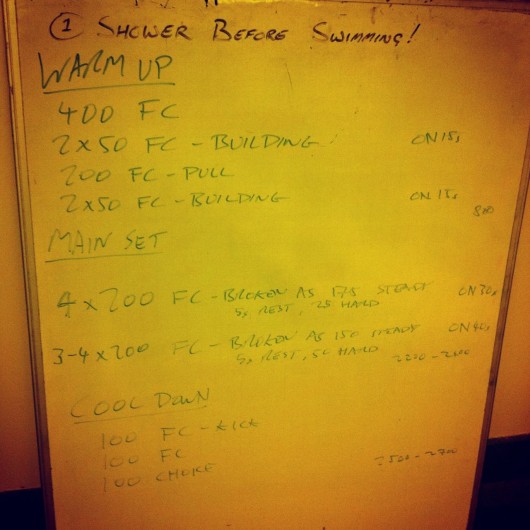 ① SHOWER BEFORE SWIMMING!
WARM UP
400 FC
2x50 FC - BUILDING ON 15s
200 FC - PULL
2x50 FC - BUILDING ON 15s
800
MAIN SET
4x200 FC - BROKEN AS 175 STEADY ON 30s
5s REST, 25 HARD
3-4x200 FC - BROKEN AS 150 STEADY ON 40s
5s REST, 50 HARD
COOL DOWN
100 FC - KICK
100 FC
100 CHOICE
2500 - 2700